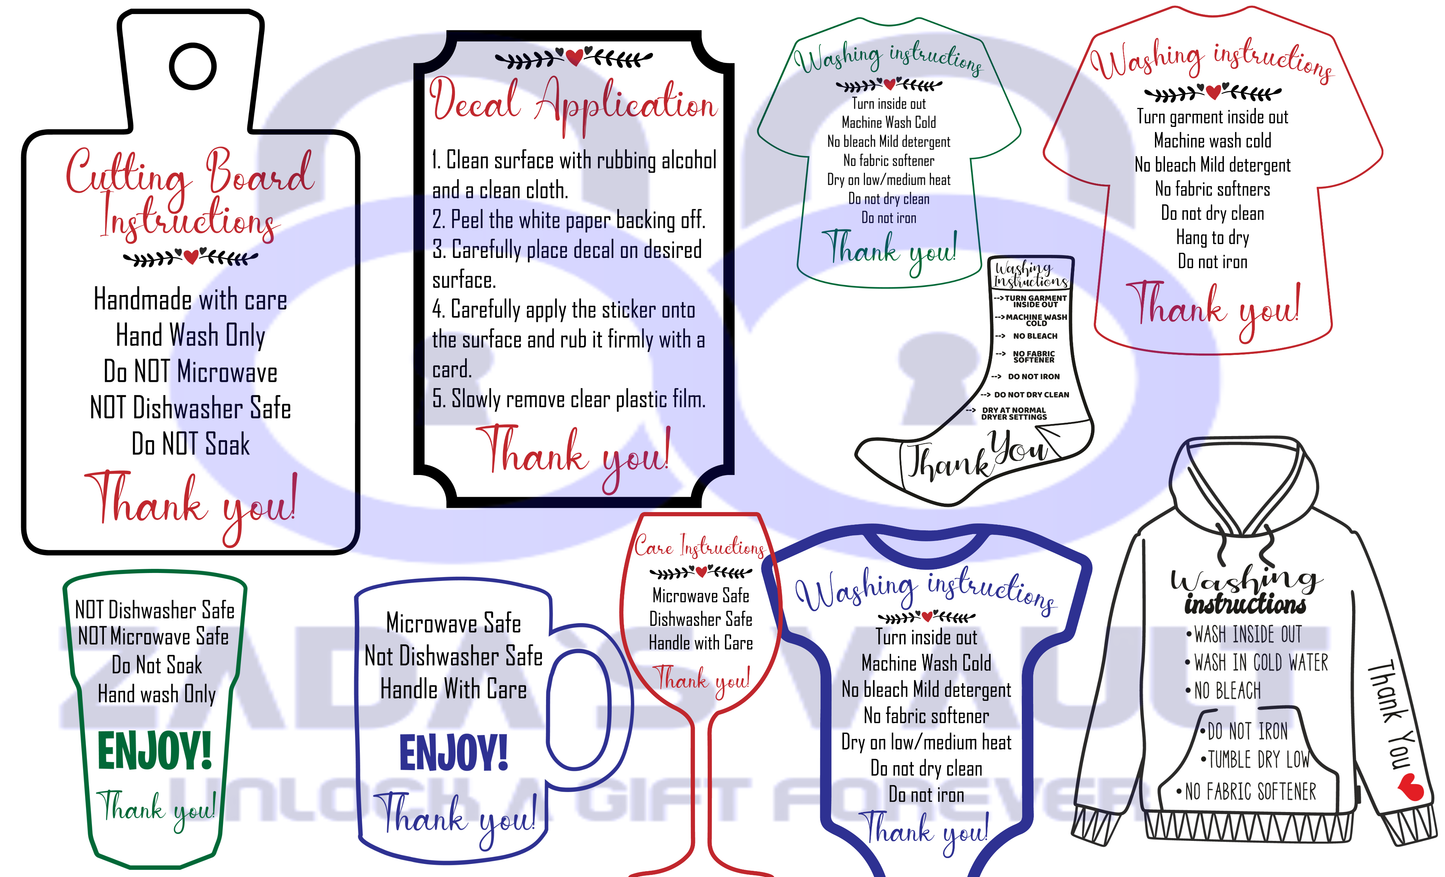 Cutting Board
Instructions
Handmade with care
Hand Wash Only
Do NOT Microwave
NOT Dishwasher Safe
Do NOT Soak
Thank you!
Decal Application
1. Clean surface with rubbing alcohol
and a clean cloth.
2. Peel the white paper backing off.
3. Carefully place decal on desired
surface.
4. Carefully apply the sticker onto
the surface and rub it firmly with a
card.
5. Slowly remove clear plastic film.
Thank you!
Washing instructions
Turn inside out
Machine Wash Cold
No bleach Mild detergent
No fabric softener
Dry on low/medium heat
Do not dry clean
Do not iron
Thank you!
Washing instructions
Turn garment inside out
Machine wash cold
No bleach Mild detergent
No fabric softners
Do not dry clean
Hang to dry
Do not iron
Thank you!
Washing
Instructions
-->TURN GARMENT
INSIDE OUT
-->MACHINE WASH
COLD
--> NO BLEACH
--> NO FABRIC
SOFTENER
--> DO NOT IRON
--> DO NOT DRY CLEAN
--> DRY AT NORMAL
DRYER SETTINGS
Thank You
NOT Dishwasher Safe
NOT Microwave Safe
Do Not Soak
Hand wash Only
ENJOY!
Thank you!
Microwave Safe
Not Dishwasher Safe
Handle With Care
ENJOY!
Thank you!
Care Instructions
Microwave Safe
Dishwasher Safe
Handle with Care
Thank you!
Washing instructions
Turn inside out
Machine Wash Cold
No bleach Mild detergent
No fabric softener
Dry on low/medium heat
Do not dry clean
Do not iron
Thank you!
Washing
instructions
•WASH INSIDE OUT
•WASH IN COLD WATER
•NO BLEACH
•DO NOT IRON
•TUMBLE DRY LOW
•NO FABRIC SOFTENER
Thank You
ZADA'S VAULT
UNLOCK A GIFT FOREVER